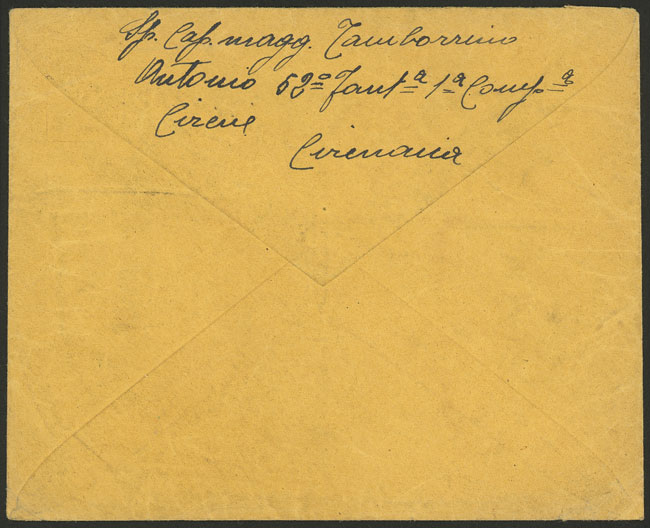 Sp. Cap. magg. Tamborrino
Antonio 52º Fantª 1ª Compª
Cirene
Cirenaica